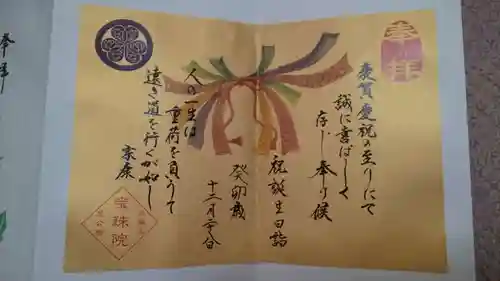 奉拝
恭賀慶祝の至りにて
誠に喜ばしく
存じ奉り候
祝誕生日詣
癸卯歳
十二月二十六日
人の一生は
重荷を負うて
遠き道を行くが如し
家康
宝珠院
芝公園
奉拝